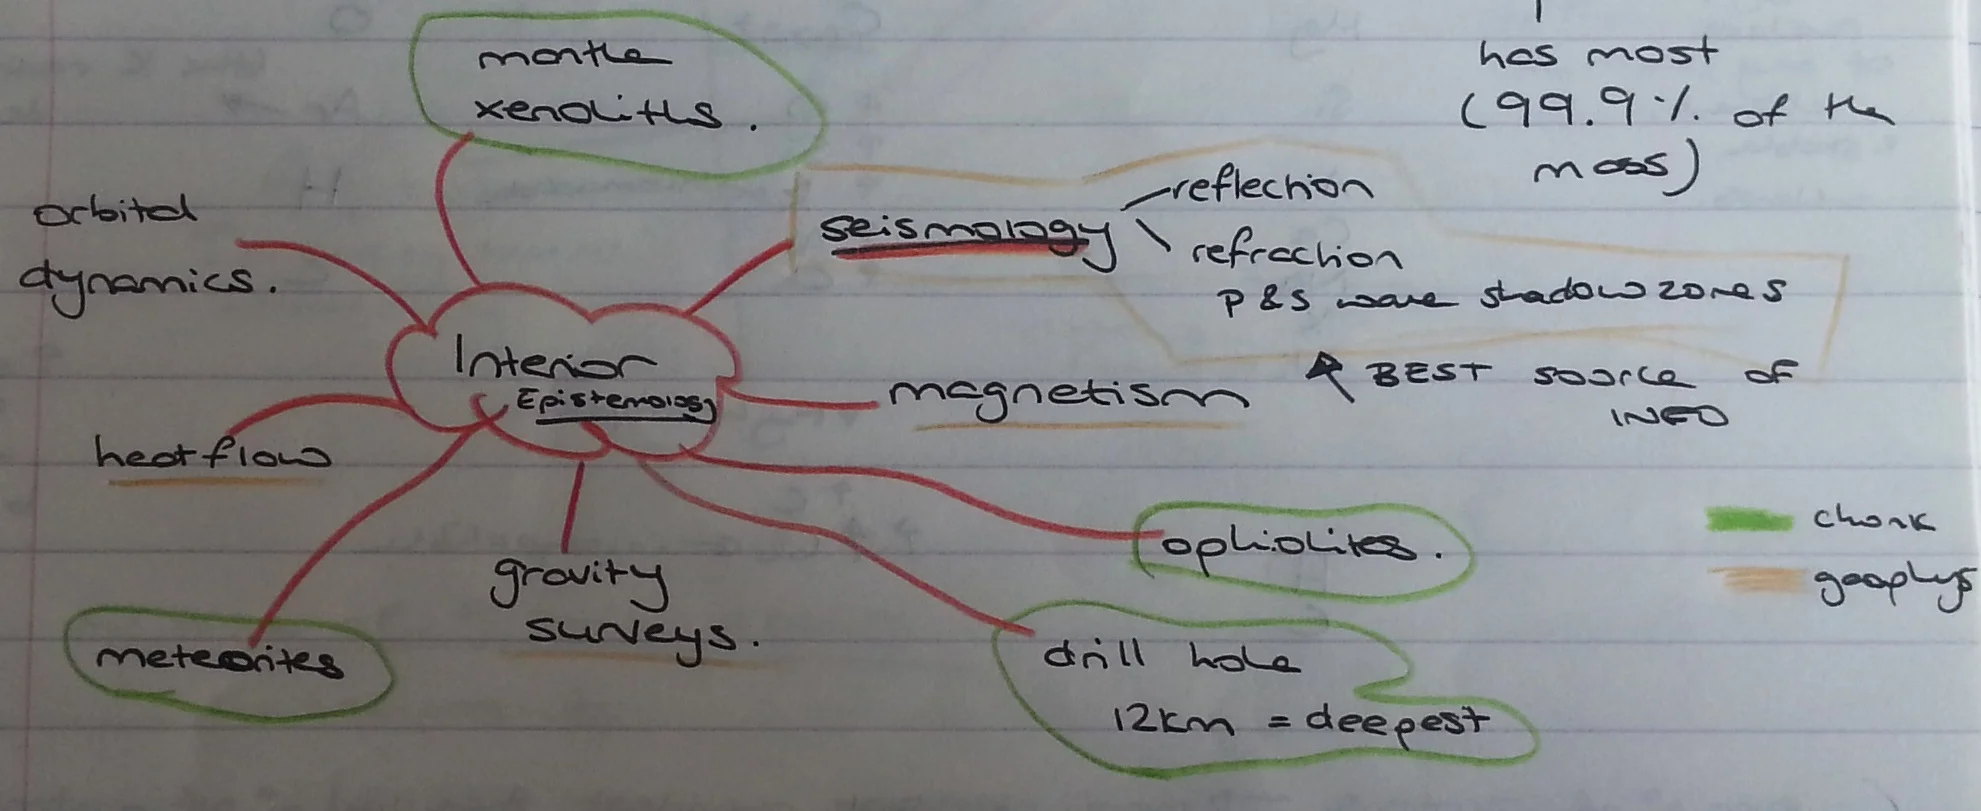 mantle
xenoliths.
has most
(99.9% of the
mass)
orbital
dynamics.
seismology
reflection
refraction
P & S wave shadow zones
Interior
Epistemology
magnetism
BEST source of
INFO
heat flow
gravity
surveys.
ophiolites.
chonk
geophys
meteorites
drill hole
12km = deepest